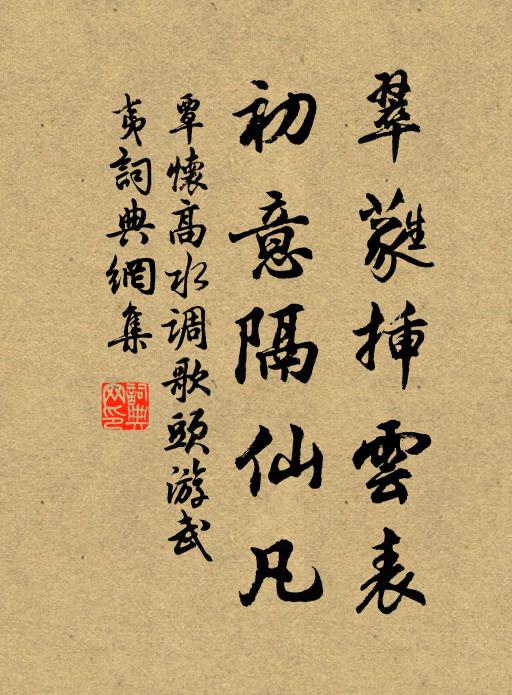 翠蕤插雲表
初意隔仙凡
覃懷高水调歌頭游武
夷詞典網集
詞典网印